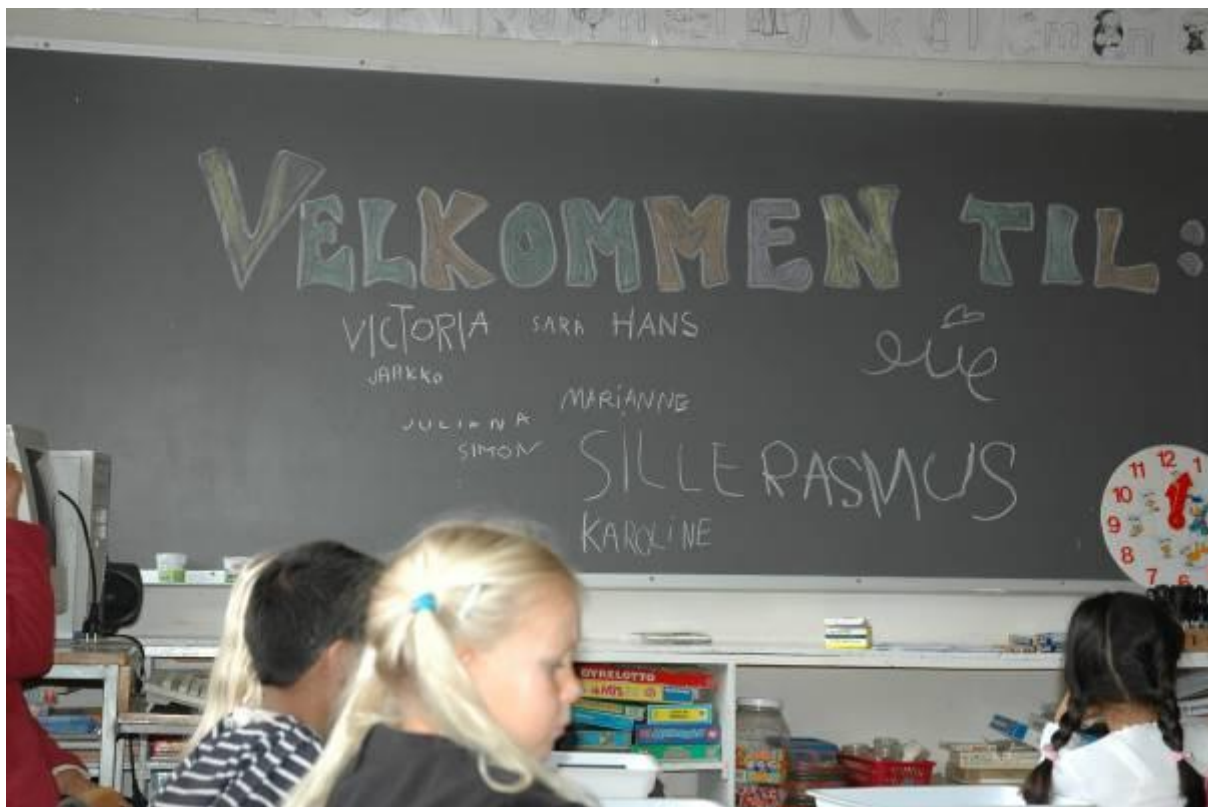 VELKOMMEN TIL:
VICTORIA SARA HANS
JAAKKO
MARiANNE
JULIANA
SIMON
SILLE RASMUS
KAROLINE
11 12 1
10
9
8
7 6
DYRELOTTO